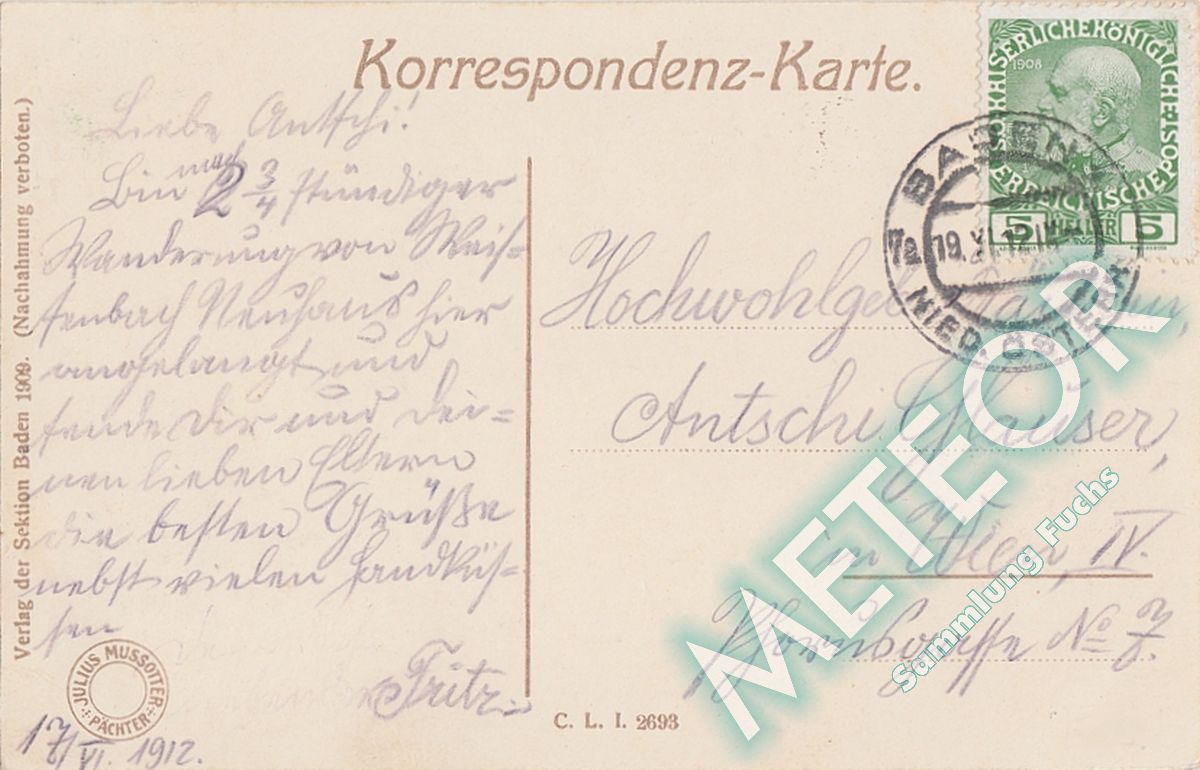 Korrespondenz-Karte.
Liebe Antschi!
Bin nach 2 3/4 stündiger
Wanderung von Weis-
senbach Neuhaus hier
angelangt und
sende Dir und Dei=
nen lieben Eltern
die besten Grüße
nebst vielen Handküs-
sen
Fritz
17/VI. 1912.
Verlag der Sektion Baden 1909. (Nachahmung verboten.)
JULIUS MUSSOTTER
PÄCHTER
C. L. I. 2693
KAISERLICHEKÖNIGLICHE
ÖSTERREICHISCHEPOST
1908
5 HELLER 5
BADEN
7a 19.VI.12
NIED. ÖSTERR.
Hochwohlgeb
Antschi
in Wien, IV.
No 7.
METEOR
Sammlung Fuchs